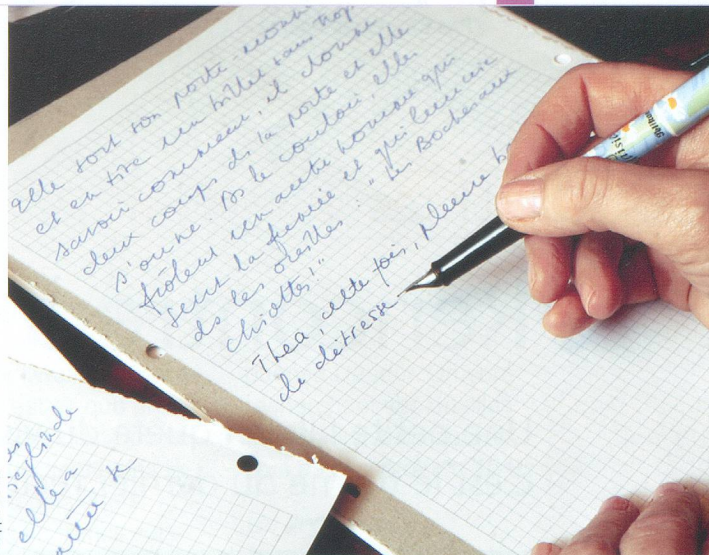 elle sort son porte-monn
et en tire un billet sans trop
savoir comment, il donne
deux coups ds la porte et elle
s'ouvre. Ds le couloir, elles
frôlent un autre homme qui
sent la fumée et qui leur
ds les oreilles : "Les Boches aux
chiottes!"
Thea, cette fois, pleure
de détresse
elle a